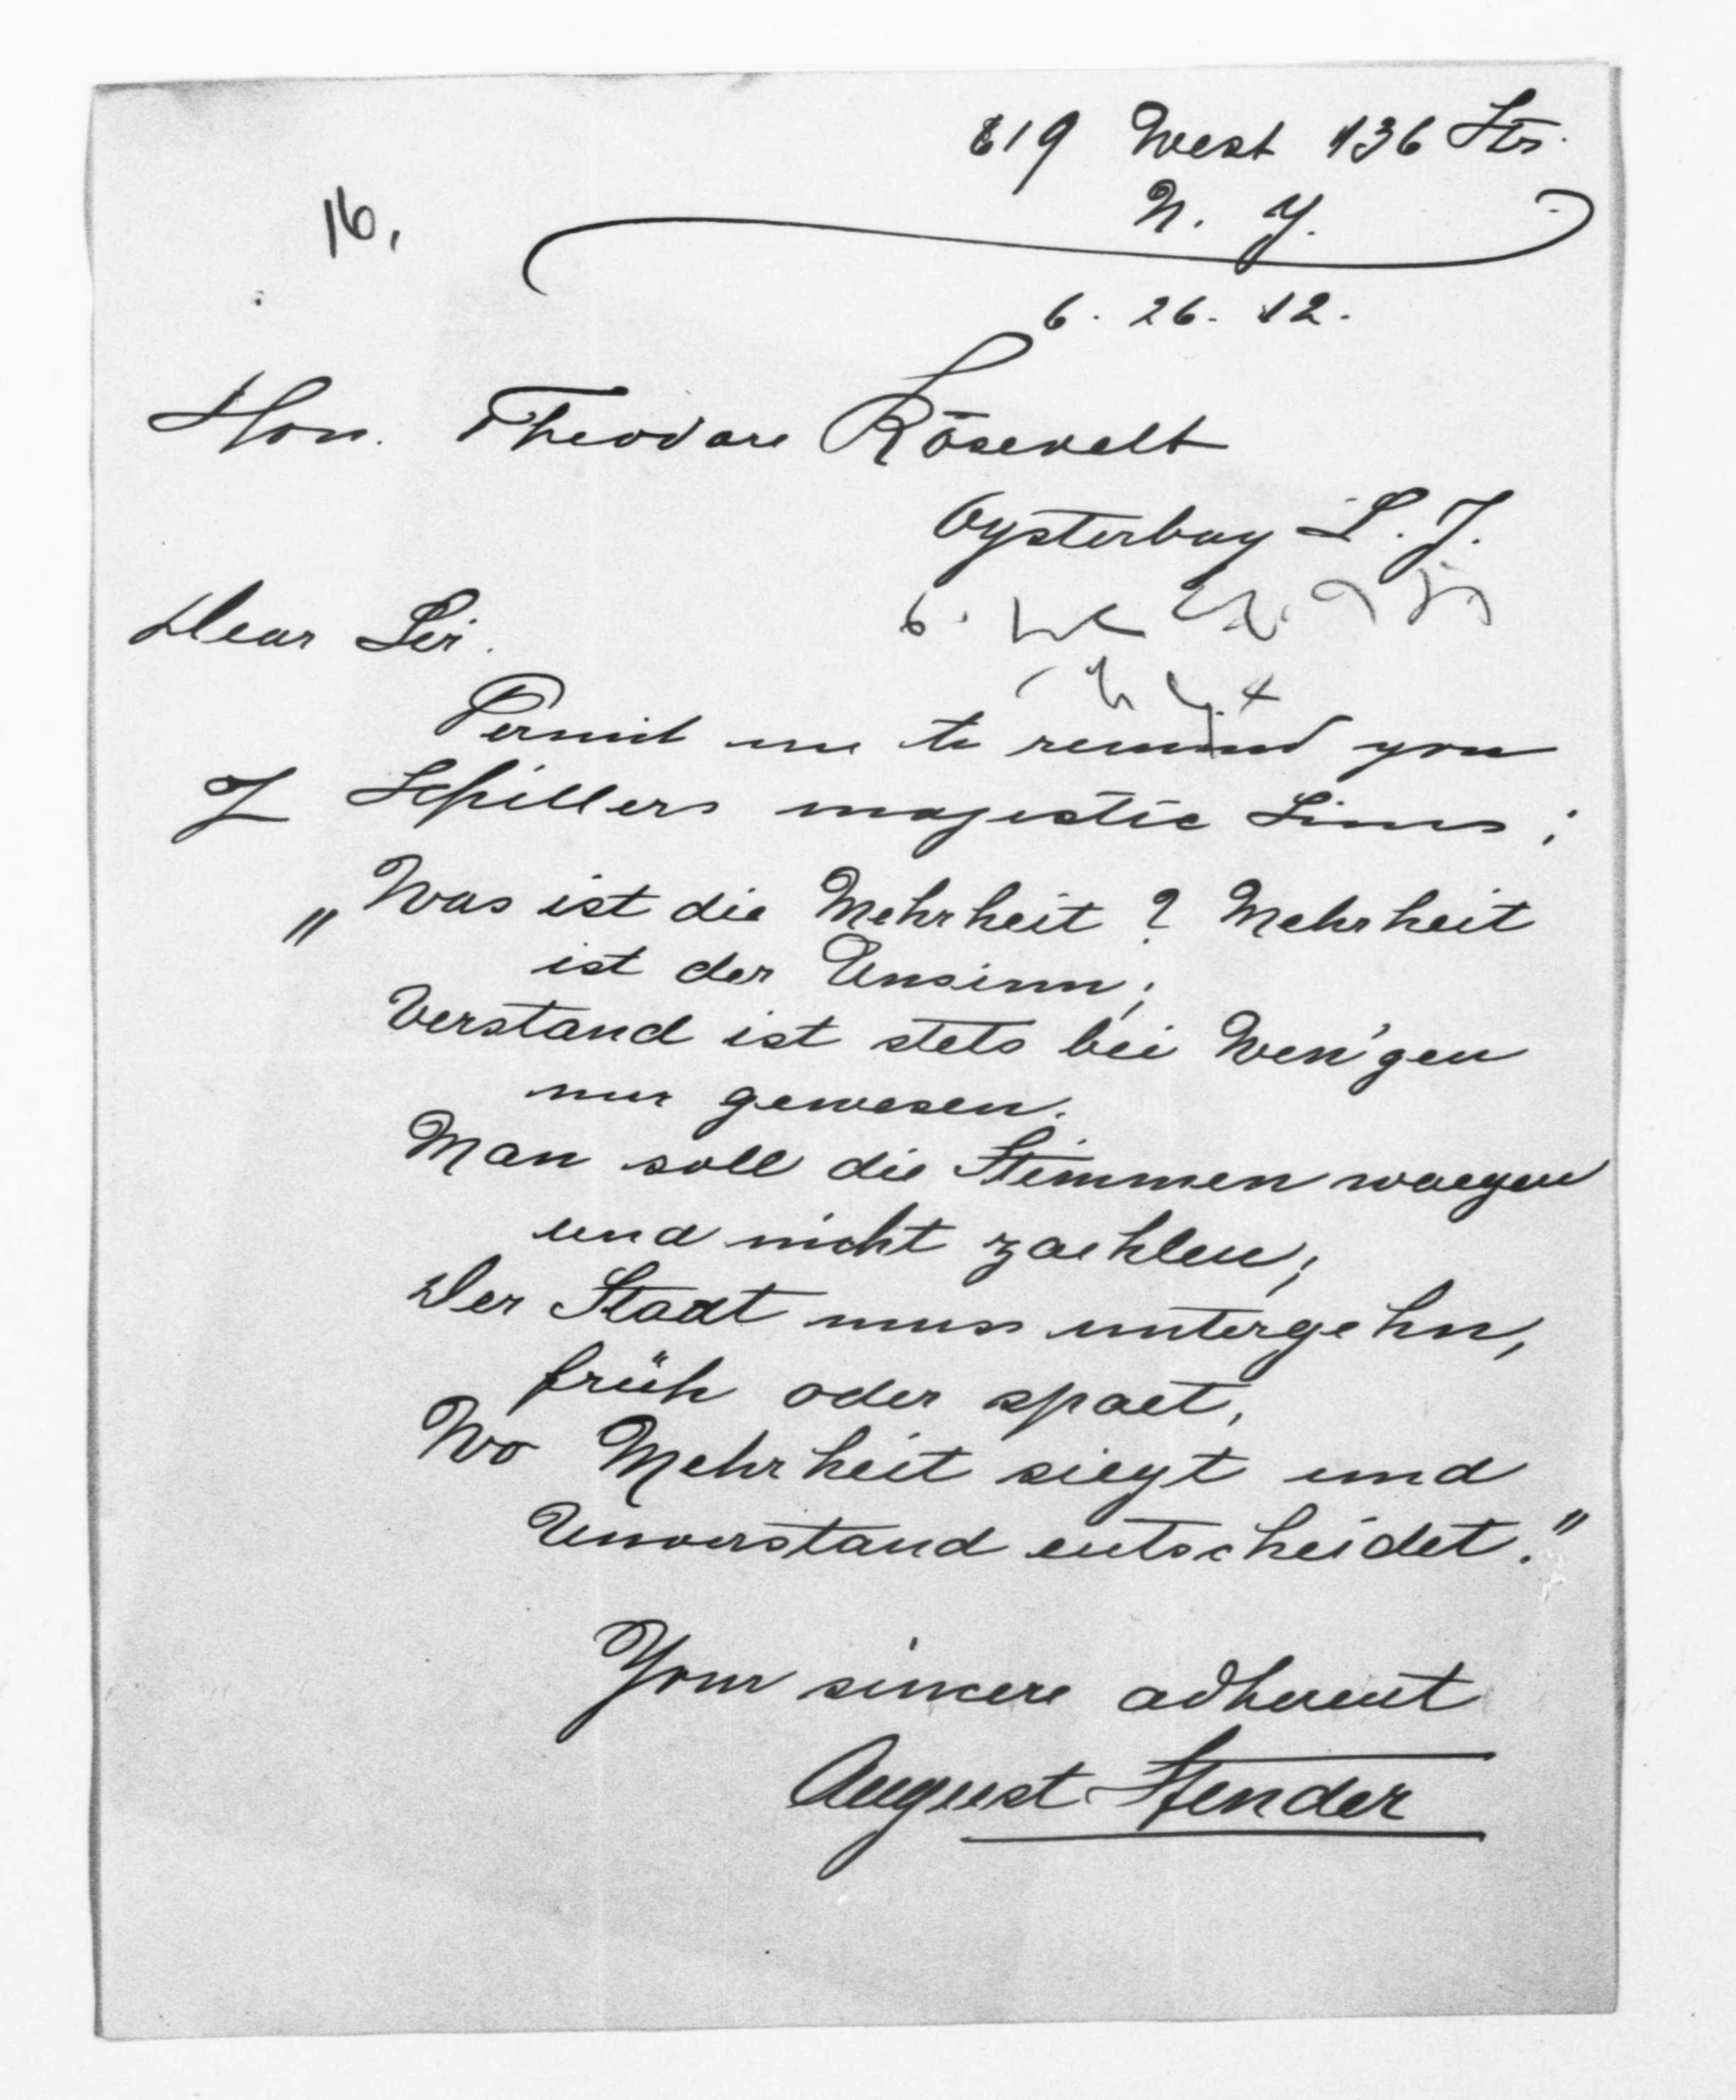 619 West 136 Str.
N. Y.
16.
6. 26. 12.
Hon. Theodore Rōsevelt
Oysterbay L. I.
Dear Sir.
Permit me to remind you
of Schillers majestic Lines:
„Was ist die Mehrheit? Mehrheit
ist der Unsinn;
Verstand ist stets bei Wen'gen
nur gewesen.
Man soll die Stimmen waegen
und nicht zaehlen;
Der Staat muss untergehn,
früh oder spaet,
Wo Mehrheit siegt und
Unverstand entscheidet."
Your sincere adherent
August Stender